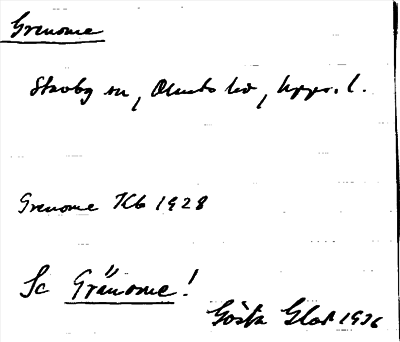 Grenome
Stavby sn, Olands hd, Upps. l.
Grenome Kb 1928
Sc Gränome!
Gösta Glad 1936